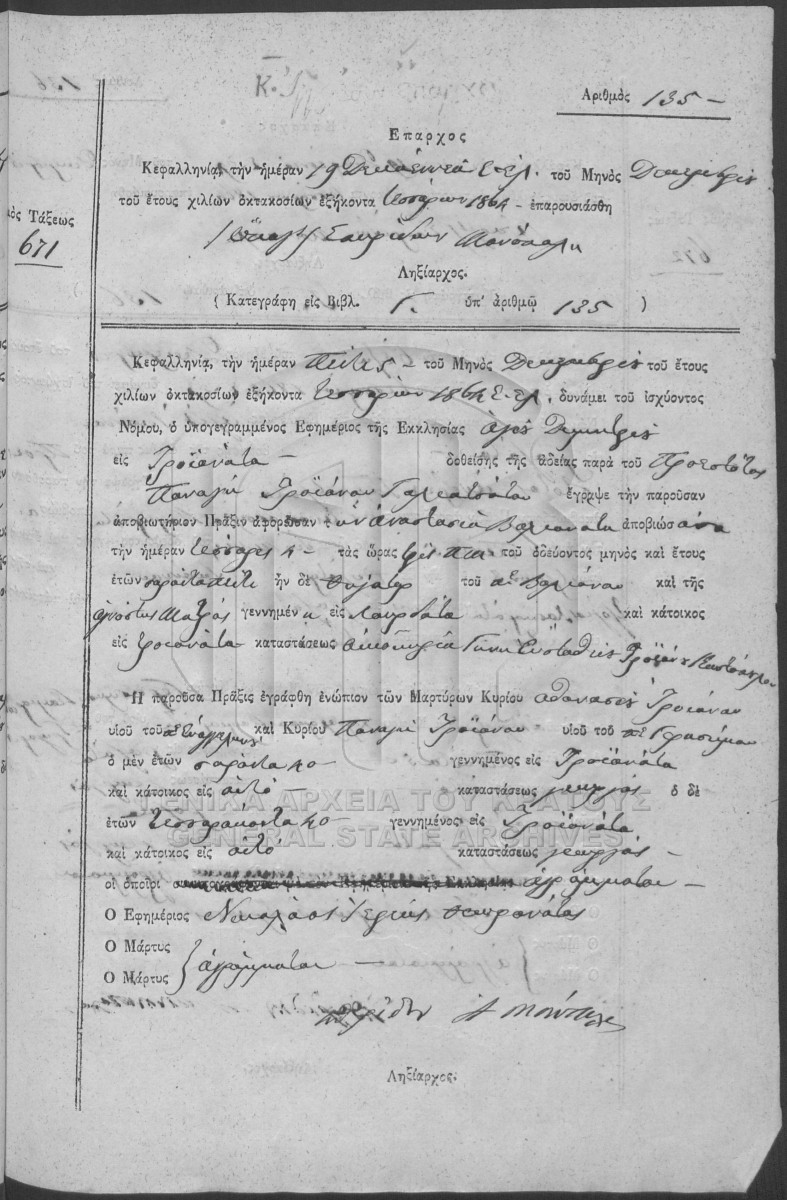 Ἀριθμὸς 135 -
Ἔπαρχος
Κεφαλληνία, τὴν ἡμέραν 19 Δεκαεννέα Ε.ελ. τοῦ Μηνὸς Δεκεμβρίου
τοῦ ἔτους χιλίων ὀκτακοσίων ἑξήκοντα τεσσάρων 1864 - ἐπαρουσιάσθη
Σπυρίδων
Ληξίαρχος.
( Κατεγράφη εἰς Βιβλ. Γ. ὑπ' ἀριθμῷ 135 )
μὸς Τάξεως
671
Κεφαλληνία, τὴν ἡμέραν Πέντε 5 - τοῦ Μηνὸς Δεκεμβρίου τοῦ ἔτους
χιλίων ὀκτακοσίων ἑξήκοντα τεσσάρων 1864 Ε.ελ. δυνάμει τοῦ ἰσχύοντος
Νόμου, ὁ ὑπογεγραμμένος Ἐφημέριος τῆς Ἐκκλησίας ἁγίου Δημητρίου
εἰς Τροϊανάτα - δοθείσης τῆς ἀδείας παρὰ τοῦ Προεστῶτος
Παναγῆ Τροϊάνου Γαλιατσάτου ἔγραψε τὴν παροῦσαν
ἀποβιωτήριον Πρᾶξιν ἀφορῶσαν τὴν Ἀναστασία Βαλιανάτα ἀποβιώσασα
τὴν ἡμέραν τέσσαρες 4 - τὰς ὥρας τρεῖς Π.Μ τοῦ ὁδεύοντος μηνὸς καὶ ἔτους
ἐτῶν σαράντα πέντε ἦν δὲ θυγάτηρ τοῦ π. Βαλιάνου καὶ τῆς
ἀγνώστου Μητρός γεννημένη εἰς Λουρδάτα καὶ κάτοικος
εἰς Τροϊανάτα καταστάσεως οἰκοκυρία Γυνή Εὐσταθίου Τροϊάνου
Ἡ παροῦσα Πρᾶξις ἐγράφθη ἐνώπιον τῶν Μαρτύρων Κυρίου Ἀθανασίου Τροϊάνου
υἱοῦ τοῦ π. Εὐαγγελινοῦ καὶ Κυρίου Παναγῆ Τροϊάνου υἱοῦ τοῦ π. Γερασίμου
ὁ μὲν ἐτῶν σαράντα 40 - γεννημένος εἰς Τροϊανάτα
καὶ κάτοικος εἰς αὐτό - καταστάσεως γεωργός ὁ δὲ
ἐτῶν τεσσαράκοντα 40 - γεννημένος εἰς Τροϊανάτα
καὶ κάτοικος εἰς αὐτό καταστάσεως γεωργός -
οἱ ὁποῖοι ἀγράμματοι -
Ὁ Ἐφημέριος Νικόλαος Ἱερεύς
Ὁ Μάρτυς
Ὁ Μάρτυς } ἀγράμματοι -
Ληξίαρχος.
ΓΕΝΙΚΑ ΑΡΧΕΙΑ ΤΟΥ ΚΡΑΤΟΥΣ
GENERAL STATE ARCHIVES